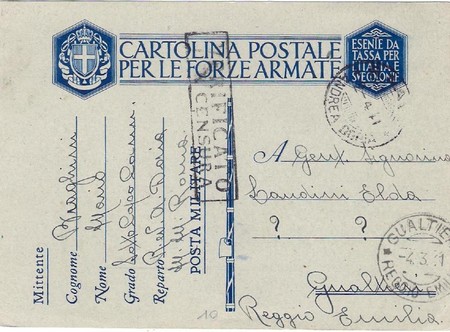 CARTOLINA POSTALE
PER LE FORZE ARMATE
ESENTE DA
TASSA PER
L'ITALIA E
SVE COLONIE
VERIFICATO
CENSURA
ANDREA DORIA
A Gent. Signorina
Landini Elda
? ?
Gualtieri
Reggio Emilia
GUALTIERI
-4.3.41
REGGIO EMILIA
Mittente
Cognome
Nome Mario
Grado
Reparto A. Doria
Roma
POSTA MILITARE
10